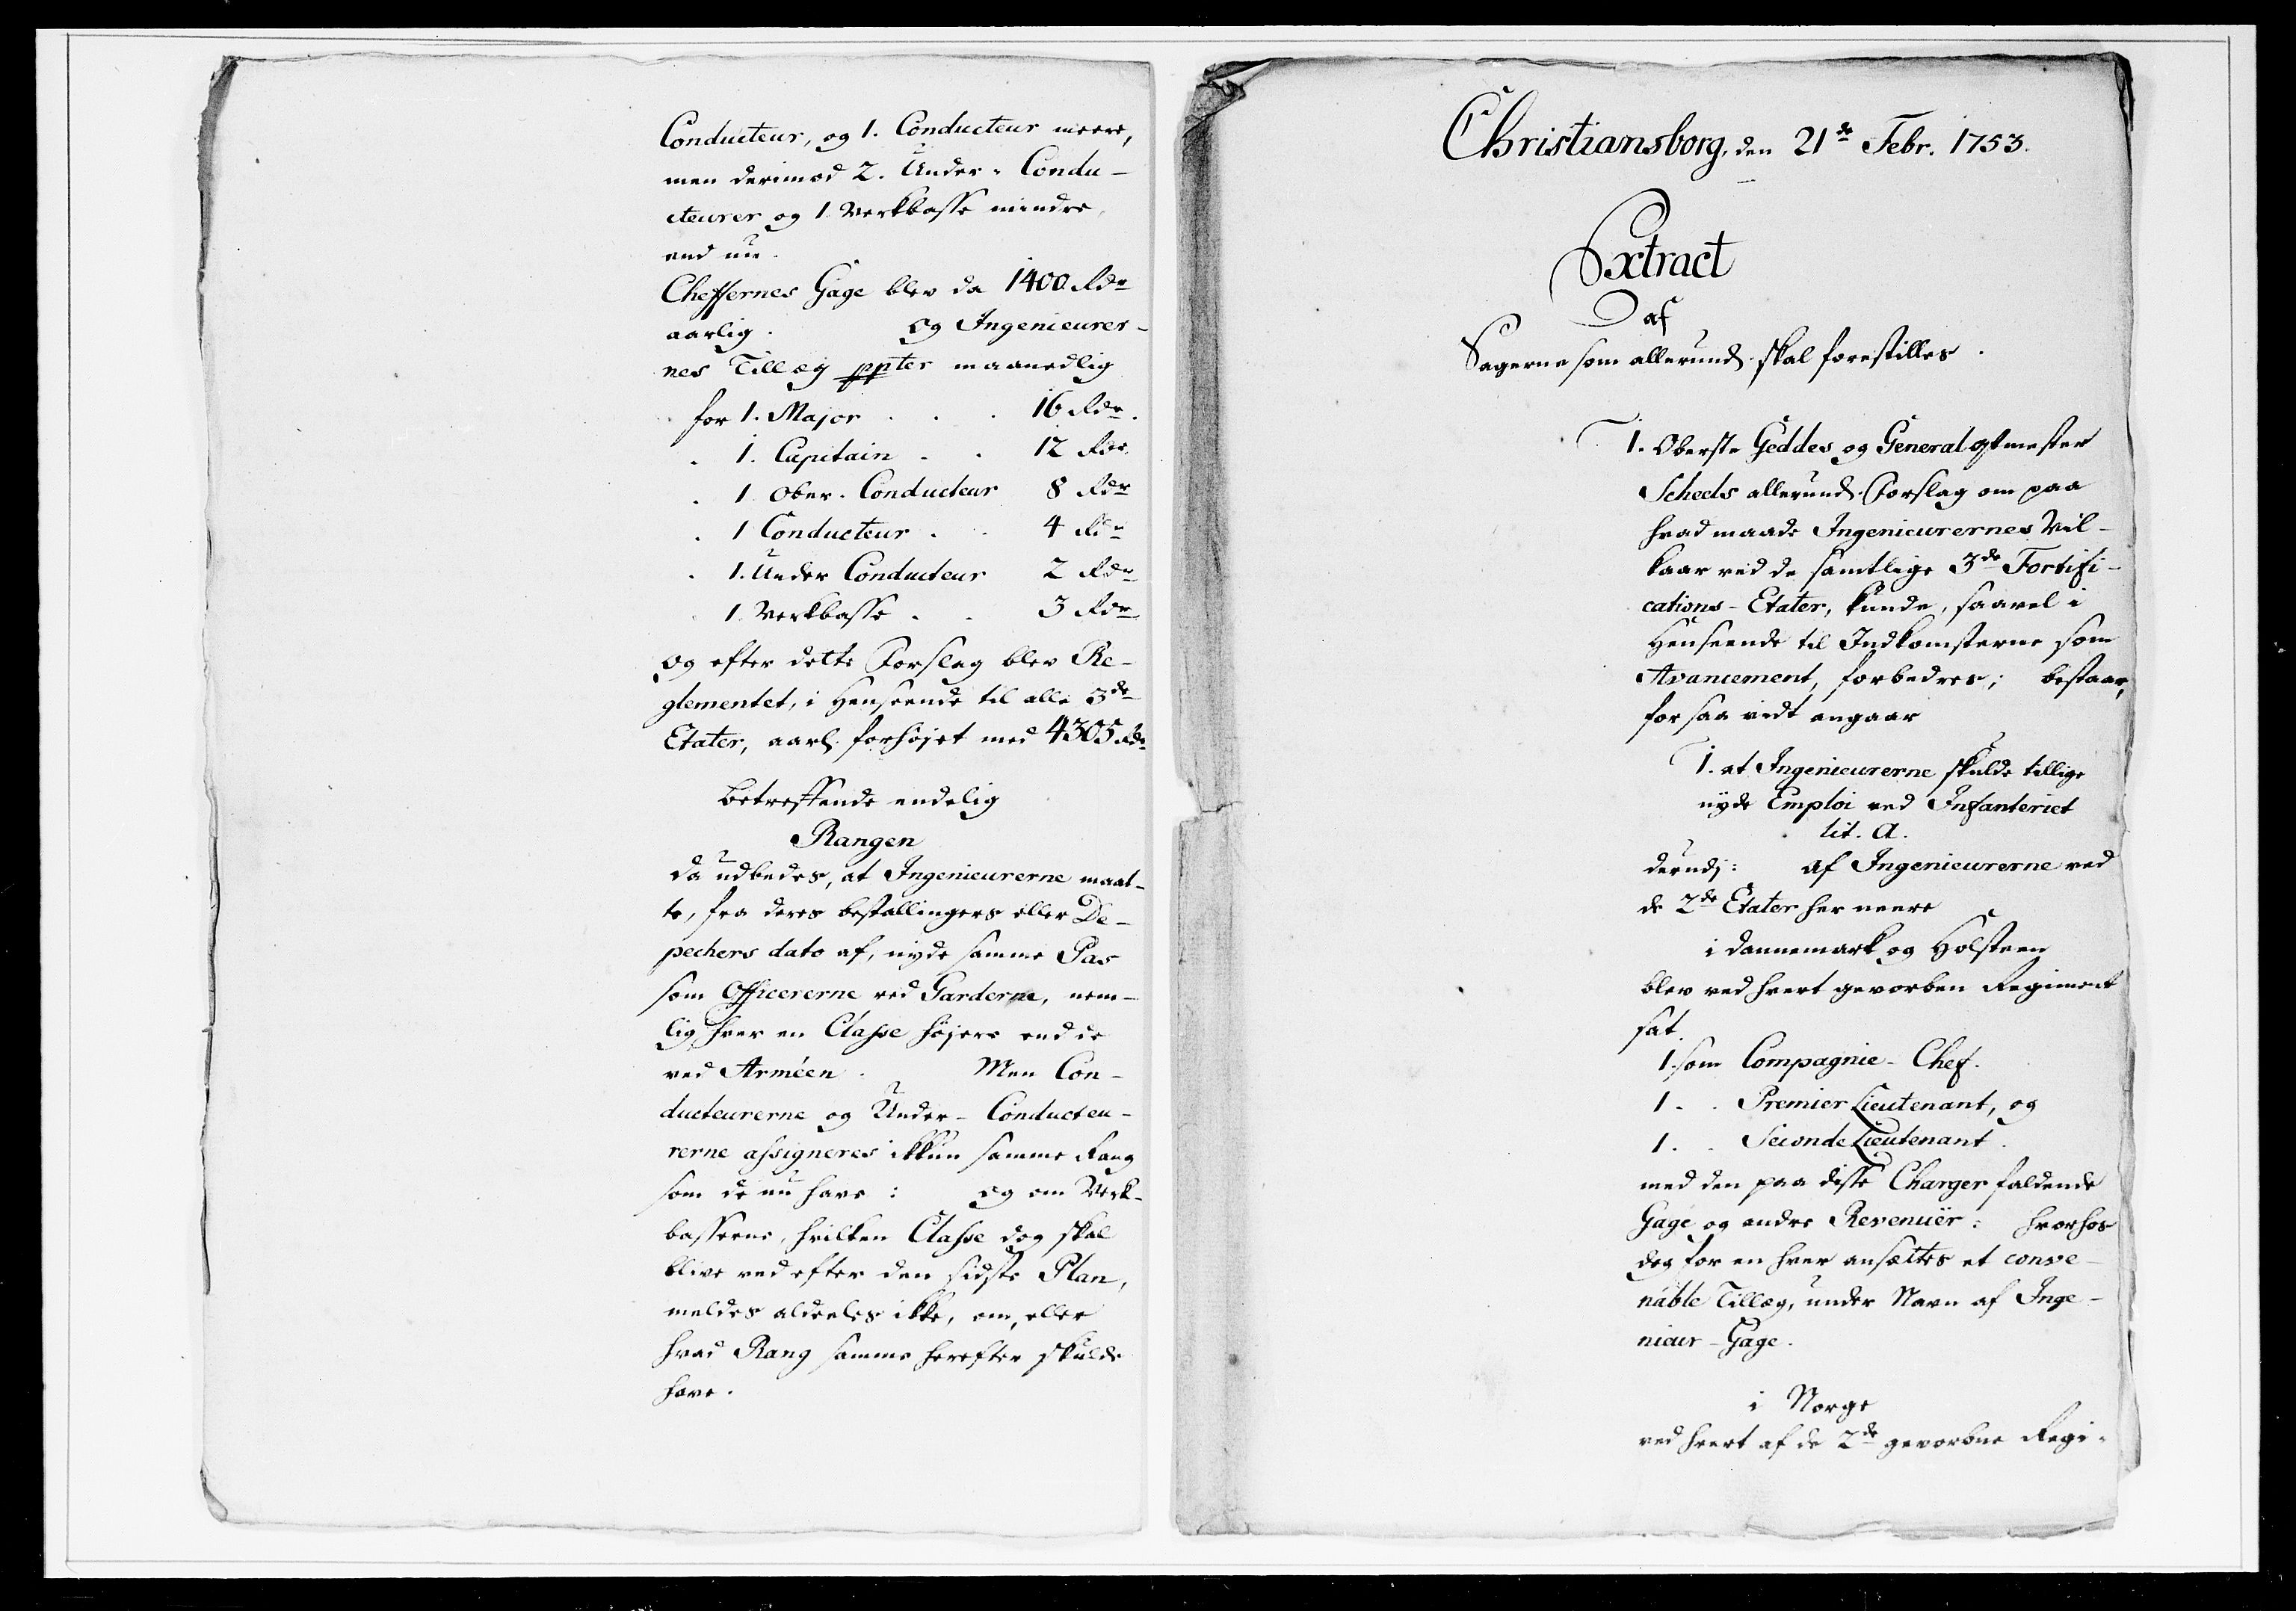 Conducteur, og 1. Conducteur meere,
men derimod 2. Under-Condu-
cteurer og 1 Verkbasse mindre,
end nu.
Cheffernes Gage blev da 1400 Rdr
aarlig. og Ingenieurer-
nes Tillæg ppter maanedlig
for 1. Major . . . 16 Rdr.
. 1. Capitain . . 12 Rdr.
. 1 Ober-Conducteur 8 Rdr
. 1 Conducteur . . 4 Rdr
. 1. Under Conducteur 2 Rdr
. 1 Verkbasse . . 3 Rdr
og efter dette Forslag blev Re-
glementet, i Henseende til alle 3de
Etater, aarl. forhøjet med 4305 Rdr
Betreffende endelig
Rangen
da udbedes, at Ingenieurerne maat-
te, fra deres bestallingers eller De-
pechers dato af, nyde samme Pas
som Officererne ved Garderne, nem-
lig hver en Classe højere end de
ved Arméen. Men Con-
ducteurerne og Under-Conducteu-
rerne assigneres ikkun samme Rang
som de nu have: og om Verk-
basserne, hvilken Classe dog skal
blive ved efter den sidste Plan,
meldes aldeeles ikke, om, eller
hvad Rang samme herefter skulde
have.
Christiansborg, den 21de Febr. 1753.
Extract
af
Sagerne som allerund. skal forestilles.
1. Oberste Geddes og General qtmester
Scheels allerund. Forslag om paa
hvad maade Ingenieurernes Vil-
kaar ved de samtlige 3de Fortifi-
cations-Etater, kunde, saavel i
Henseende til Indkomsterne som
Avancement, forbedres; bestaar,
for saa vidt angaar
1. at Ingenieurerne skulde tillige
nyde Emploi ved Infanteriet
lit. A.
derudj: af Ingenieurerne ved
de 2de Etater her neere
i Dannemark og Holsteen
blev ved hvert gevorben Regiment
sat.
1. som Compagnie-Chef.
1. . Premier Lieutenant, og
1. . Seconde Lieutenant.
med den paa disse Charger faldende
Gage og andre Revenuër: hvorhos
dog for en hver ansættes et conve-
nable Tillæg, under Navn af Inge-
nieur-Gage.
i Norge
ved hvert af de 2de gevorbne Regi-